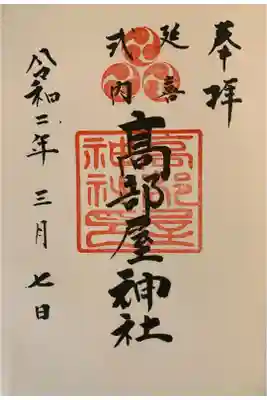 奉拝
延喜
式内
高部屋神社
高部屋
神社印
令和二年
三月
七日